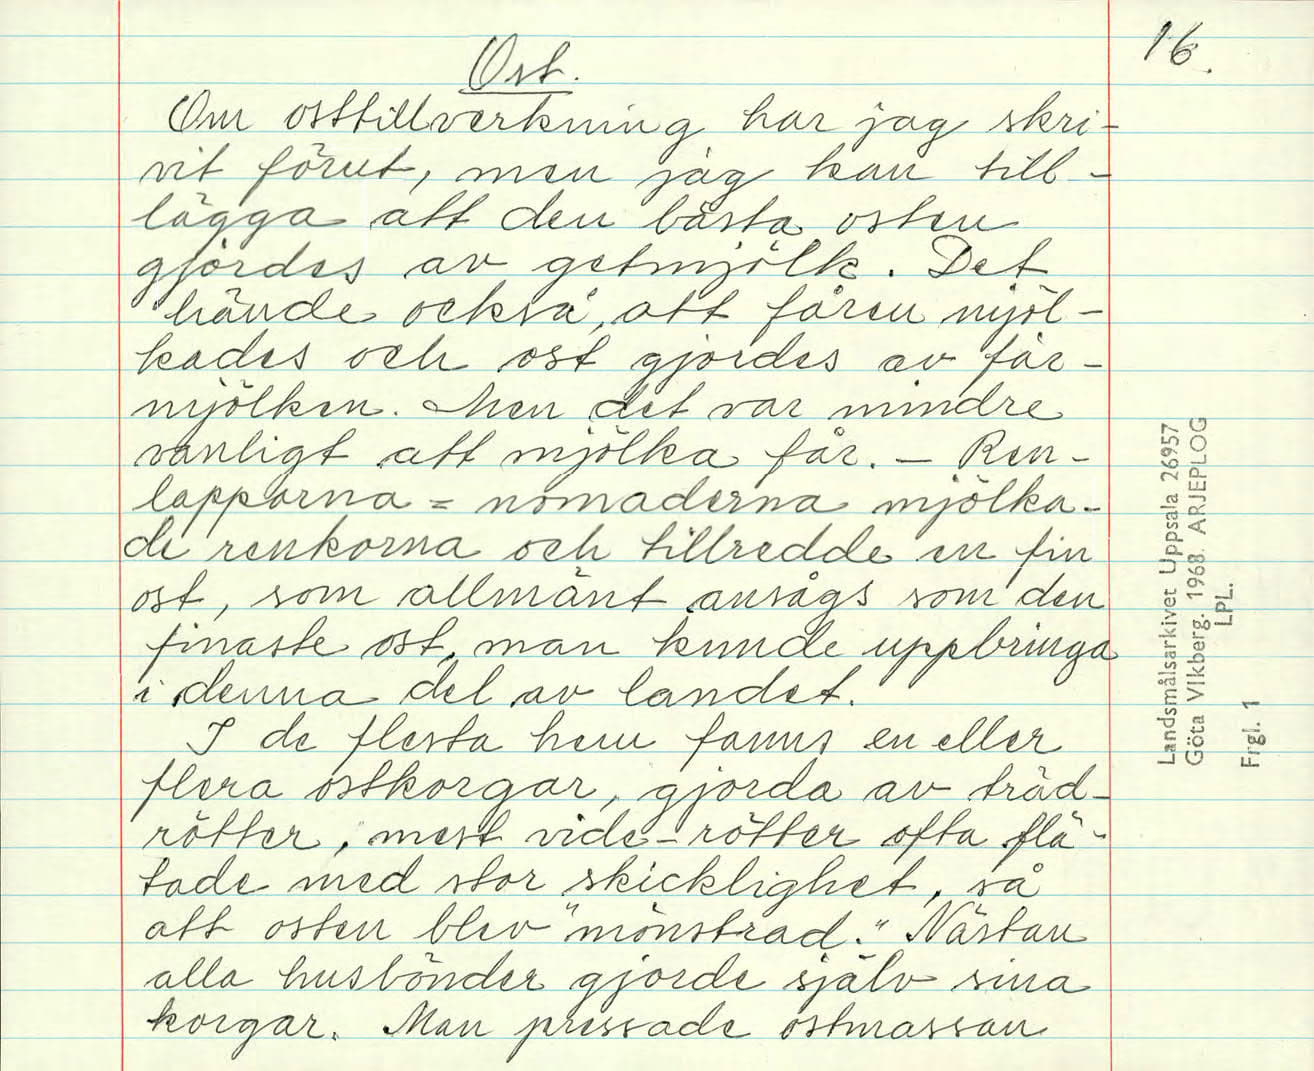 16.
Ost.
Om osttillverkning har jag skri-
vit förut, men jag kan till-
lägga att den bästa osten
gjordes av getmjölk. Det
hände också, att fåren mjöl-
kades och ost gjordes av får-
mjölken. Men det var mindre
vanligt att mjölka får. – Ren-
lapparna = nomaderna mjölka-
de renkorna och tillredde en fin
ost, som allmänt ansågs som den
finaste ost, man kunde uppbringa
i denna del av landet.
I de flesta hem fanns en eller
flera ostkorgar, gjorda av träd-
rötter, mest vide-rötter ofta flä-
tade med stor skicklighet, så
att osten blev "mönstrad." Nästan
alla husbönder gjorde själv sina
korgar. Man pressade ostmassan
Landsmålsarkivet Uppsala 26957
Göta Vikberg. 1968. ARJEPLOG
LPL.
Frgl. 1